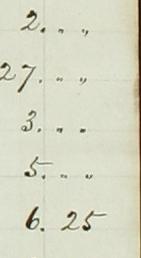 2. „ „
27. „ „
3. „ „
5. „ „
6. 25